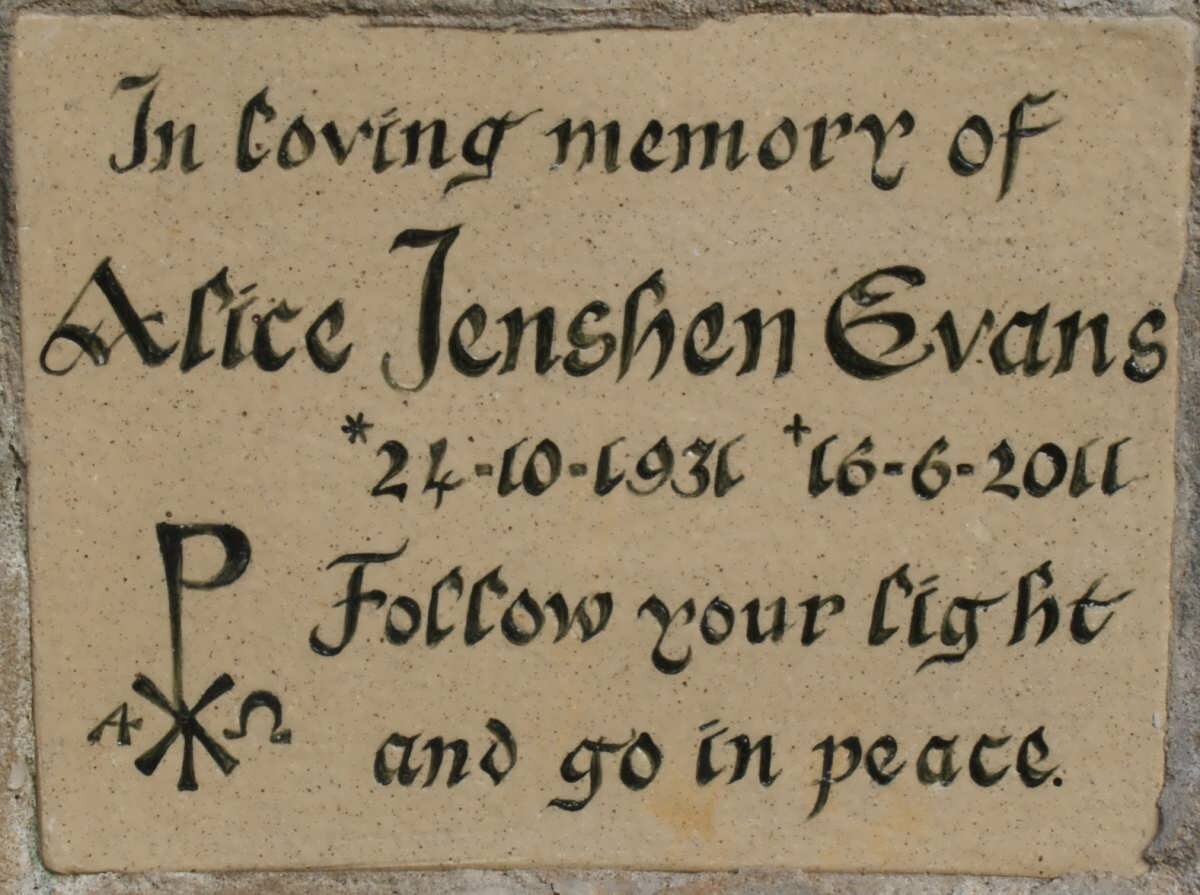 In loving memory of
Alice Jenshen Evans
*24-10-1931 +16-6-2011
Follow your light
and go in peace.
Α Ω